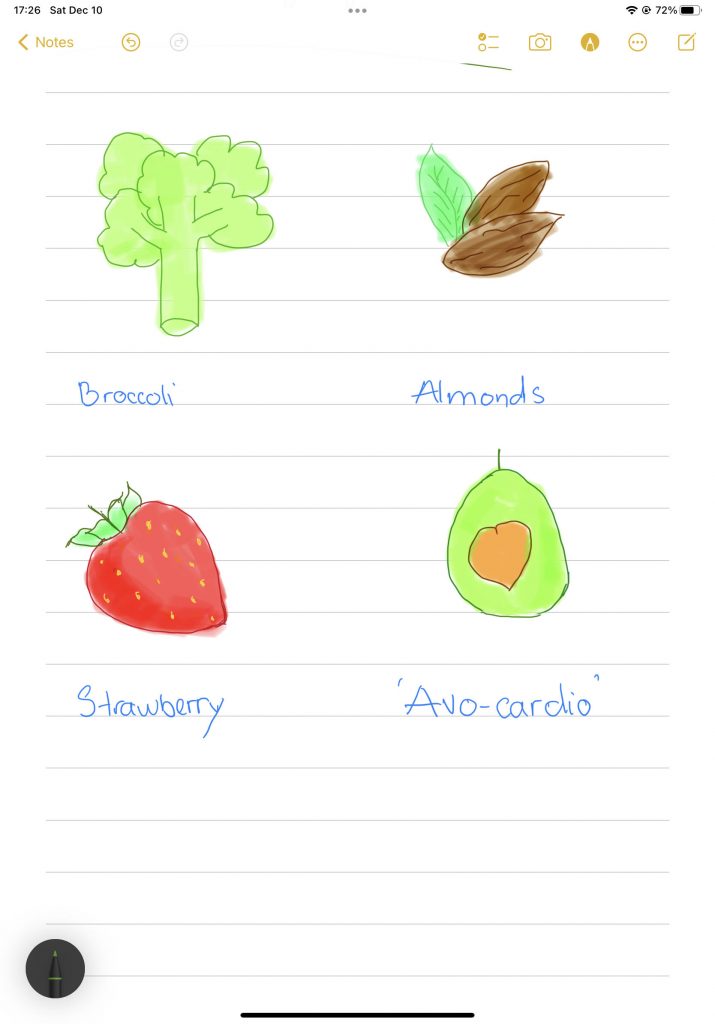 17:26 Sat Dec 10
72%
Notes
Broccoli
Almonds
Strawberry
'Avo-cardio'